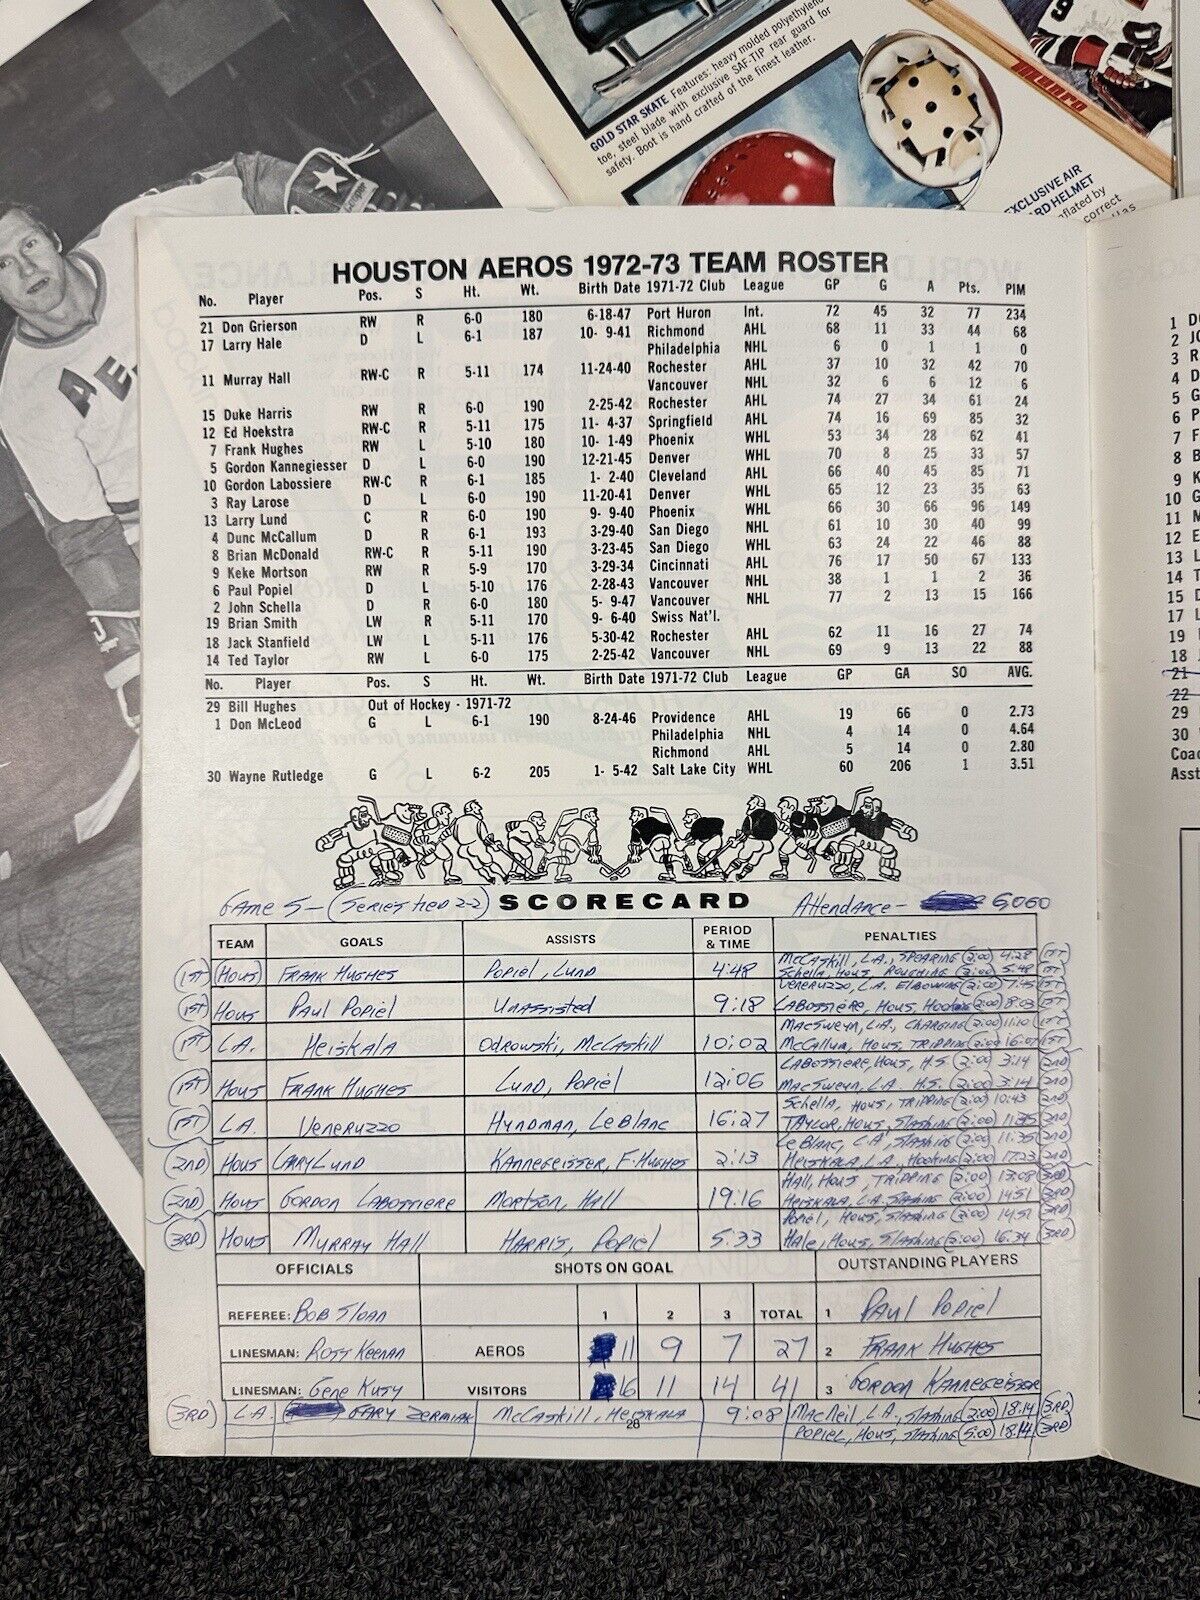 GOLD STAR SKATE Features: heavy molded polyethylene
toe, steel blade with exclusive SAF-TIP rear guard for
safety. Boot is hand crafted of the finest leather.
EXCLUSIVE AIR
HELMET
correct
HOUSTON AEROS 1972-73 TEAM ROSTER
No. Player Pos. S Ht. Wt. Birth Date 1971-72 Club League GP G A Pts. PIM
21 Don Grierson RW R 6-0 180 6-18-47 Port Huron Int. 72 45 32 77 234
17 Larry Hale D L 6-1 187 10- 9-41 Richmond AHL 68 11 33 44 68
Philadelphia NHL 6 0 1 1 0
11 Murray Hall RW-C R 5-11 174 11-24-40 Rochester AHL 37 10 32 42 70
Vancouver NHL 32 6 6 12 6
15 Duke Harris RW R 6-0 190 2-25-42 Rochester AHL 74 27 34 61 24
12 Ed Hoekstra RW-C R 5-11 175 11- 4-37 Springfield AHL 74 16 69 85 32
7 Frank Hughes RW L 5-10 180 10- 1-49 Phoenix WHL 53 34 28 62 41
5 Gordon Kannegiesser D L 6-0 190 12-21-45 Denver WHL 70 8 25 33 57
10 Gordon Labossiere RW-C R 6-1 185 1- 2-40 Cleveland AHL 66 40 45 85 71
3 Ray Larose D L 6-0 190 11-20-41 Denver WHL 65 12 23 35 63
13 Larry Lund C R 6-0 190 9- 9-40 Phoenix WHL 66 30 66 96 149
4 Dunc McCallum D R 6-1 193 3-29-40 San Diego NHL 61 10 30 40 99
8 Brian McDonald RW-C R 5-11 190 3-23-45 San Diego WHL 63 24 22 46 88
9 Keke Mortson RW R 5-9 170 3-29-34 Cincinnati AHL 76 17 50 67 133
6 Paul Popiel D L 5-10 176 2-28-43 Vancouver NHL 38 1 1 2 36
2 John Schella D R 6-0 180 5- 9-47 Vancouver NHL 77 2 13 15 166
19 Brian Smith LW R 5-11 170 9- 6-40 Swiss Nat'l.
18 Jack Stanfield LW L 5-11 176 5-30-42 Rochester AHL 62 11 16 27 74
14 Ted Taylor RW L 6-0 175 2-25-42 Vancouver NHL 69 9 13 22 88
No. Player Pos. S Ht. Wt. Birth Date 1971-72 Club League GP GA SO AVG.
29 Bill Hughes Out of Hockey - 1971-72
1 Don McLeod G L 6-1 190 8-24-46 Providence AHL 19 66 0 2.73
Philadelphia NHL 4 14 0 4.64
Richmond AHL 5 14 0 2.80
30 Wayne Rutledge G L 6-2 205 1- 5-42 Salt Lake City WHL 60 206 1 3.51
GAME 5 - (SERIES TIED 2-2) SCORECARD Attendance - 6,060
TEAM GOALS ASSISTS PERIOD & TIME PENALTIES
(1ST) (HOUS) FRANK HUGHES POPIEL, LUND 4:48 McCASKILL, L.A., SPEARING (2:00) 4:28 (1ST)
Schella, HOUS, ROUGHING (2:00) 5:48 (1ST)
(1ST) HOUS PAUL POPIEL UNASSISTED 9:18 VENERUZZO, L.A. ELBOWING (2:00) 7:45 (1ST)
LABOSSIERE, HOUS, HOOKING (2:00) 8:03 (1ST)
(1ST) L.A. HEISKALA ODROWSKI, McCASKILL 10:02 MACSWEYN, L.A., CHARGING (2:00) 11:10 (1ST)
McCallum, HOUS, TRIPPING (2:00) 16:07 (1ST)
(1ST) HOUS FRANK HUGHES LUND, POPIEL 12:06 LABOSSIERE, HOUS, H.S. (2:00) 3:14 (2ND)
MACSWEYN, L.A. H.S. (2:00) 3:14 (2ND)
(1ST) L.A. VENERUZZO HYNDMAN, LeBLANC 16:27 Schella, HOUS, TRIPPING (2:00) 10:43 (2ND)
TAYLOR, HOUS, SLASHING (2:00) 11:35 (2ND)
(2ND) HOUS LARRY LUND KANNEGEISSER, F. HUGHES 2:13 LeBLANC, L.A., SLASHING (2:00) 11:35 (2ND)
HEISKALA, L.A., HOOKING (2:00) 17:23 (2ND)
(2ND) HOUS GORDON LABOSSIERE MORTSON, HALL 19:16 HALL, HOUS, TRIPPING (2:00) 13:08 (3RD)
HEISKALA, L.A. SLASHING (2:00) 14:51 (3RD)
(3RD) HOUS MURRAY HALL HARRIS, POPIEL 5:33 POPIEL, HOUS, SLASHING (2:00) 14:51 (3RD)
Hale, HOUS, SLASHING (2:00) 16:34 (3RD)
OFFICIALS SHOTS ON GOAL OUTSTANDING PLAYERS
REFEREE: BOB SLOAN 1 2 3 TOTAL 1 PAUL POPIEL
LINESMAN: ROSS KEENAN AEROS 11 9 7 27 2 FRANK HUGHES
LINESMAN: Gene KUSY VISITORS 16 11 14 41 3 GORDON KANNEGEISSER
(3RD) L.A. GARY ZERMIAK McCASKILL, HEISKALA 9:08 MACNEIL, L.A., SLASHING (2:00) 18:14 (3RD)
28 POPIEL, HOUS, SLASHING (5:00) 18:14 (3RD)
1 D
2 JO
3 R
4 D
5 G
6 P
7 F
8 B
9 K
10 G
11 M
12 E
13 L
14 T
15 D
17 L
19
18
21
22
29
30
Coac
Asst